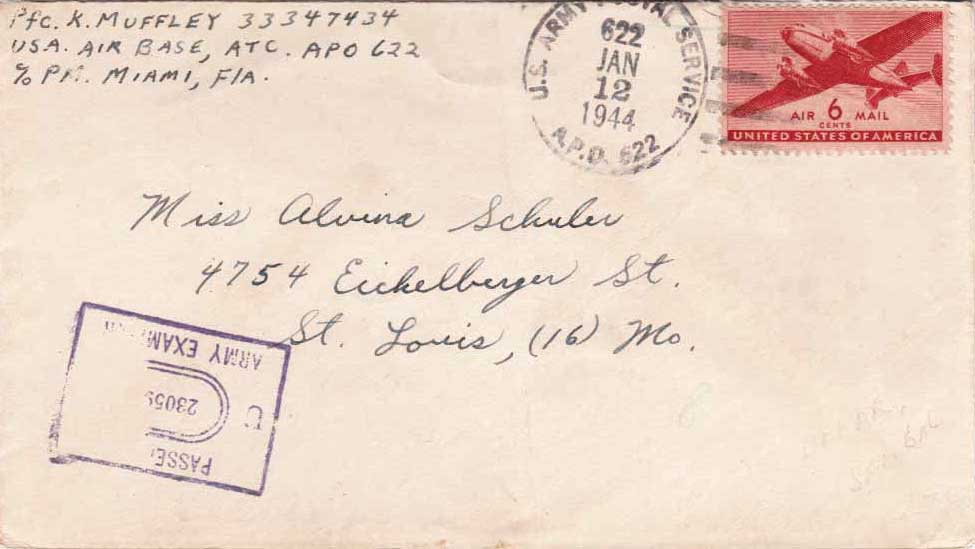 Pfc. K. MUFFLEY 33347434
USA. AIR BASE, ATC. APO 622
℅ PM. MIAMI, FlA.
U.S. ARMY POSTAL SERVICE
622
JAN
12
1944
A.P.O. 622
AIR 6 MAIL
CENTS
UNITED STATES OF AMERICA
Miss Alvina Schuler
4754 Eichelberger St.
St. Louis, (16) Mo.
PASSE
23059
ARMY EXAM